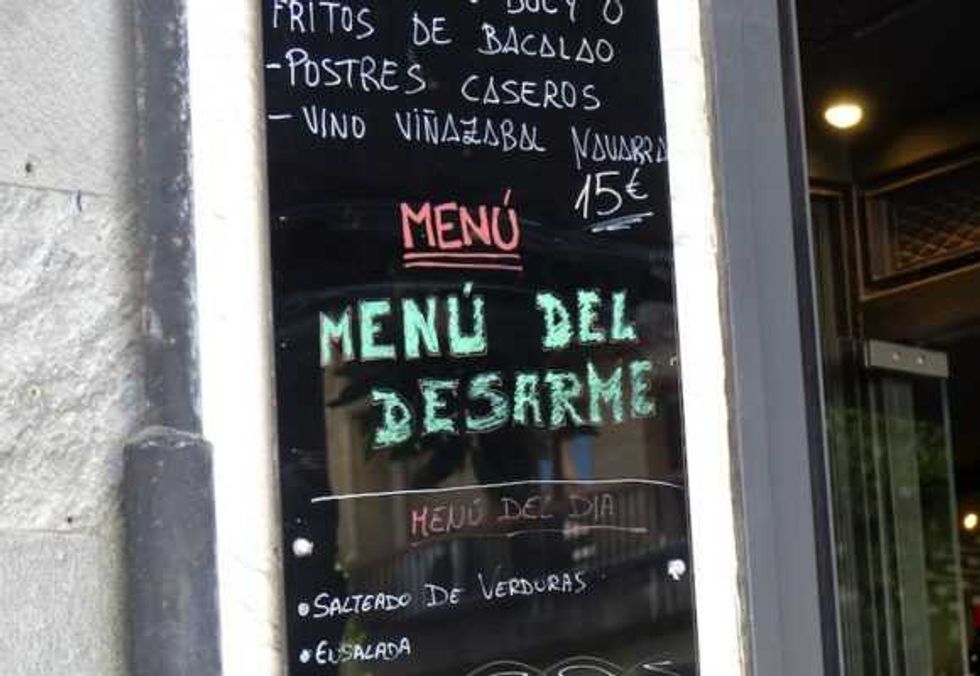 FRITOS DE BACALAO
-POSTRES CASEROS
- VINO VIÑAZABAL NAVARRA
15€
MENÚ
MENÚ DEL
DESARME
MENÚ DEL DIA
• SALTEADO DE VERDURAS
• ENSALADA